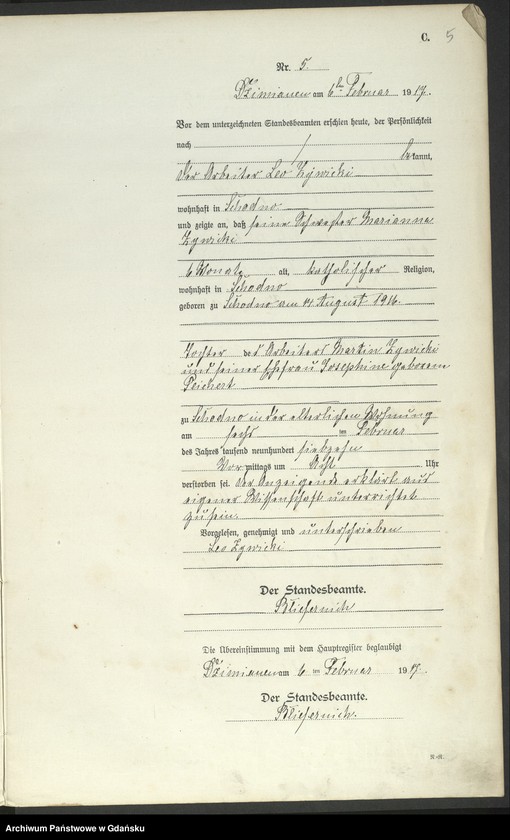 C. 5
Nr. 5.
Dzimianen am 6ten Februar 1917.
Vor dem unterzeichneten Standesbeamten erschien heute, der Persönlichkeit
nach / bekannt,
der Arbeiter Leo Zywicki
wohnhaft in Schodno
und zeigte an, daß seine Schwester Marianna
Zywicki
6 Monate alt, katholischer Religion,
wohnhaft in Schodno
geboren zu Schodno am 14 August 1916.
Tochter des Arbeiters Martin Zywicki
und seiner Ehefrau Josephine geborene
Peichert
zu Schodno in der elterlichen Wohnung
am sechs im Februar
des Jahres tausend neunhundert siebzehn
Vor mittags um Acht Uhr
verstorben sei. Der Anzeigende erklärt aus
eigener Wissenschaft unterrichtet
zu sein.
Vorgelesen, genehmigt und unterschrieben
Leo Zywicki
Der Standesbeamte.
Die Übereinstimmung mit dem Hauptregister beglaubigt
Dzimianen am 6 ten Februar 1917.
Der Standesbeamte.
Archiwum Państwowe w Gdańsku